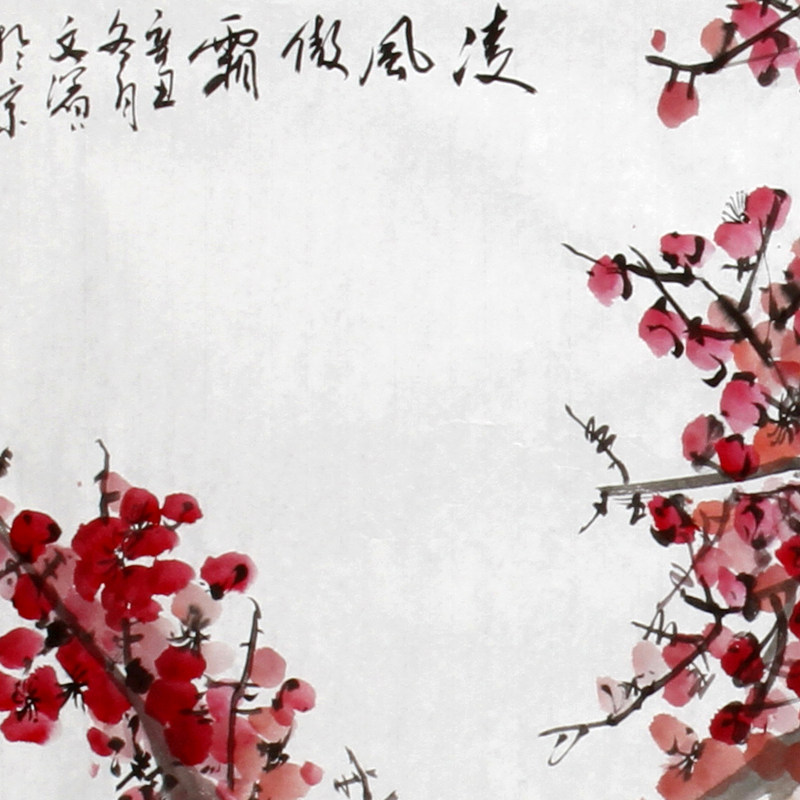 凌風傲霜
辛丑
冬月
文濤
於京